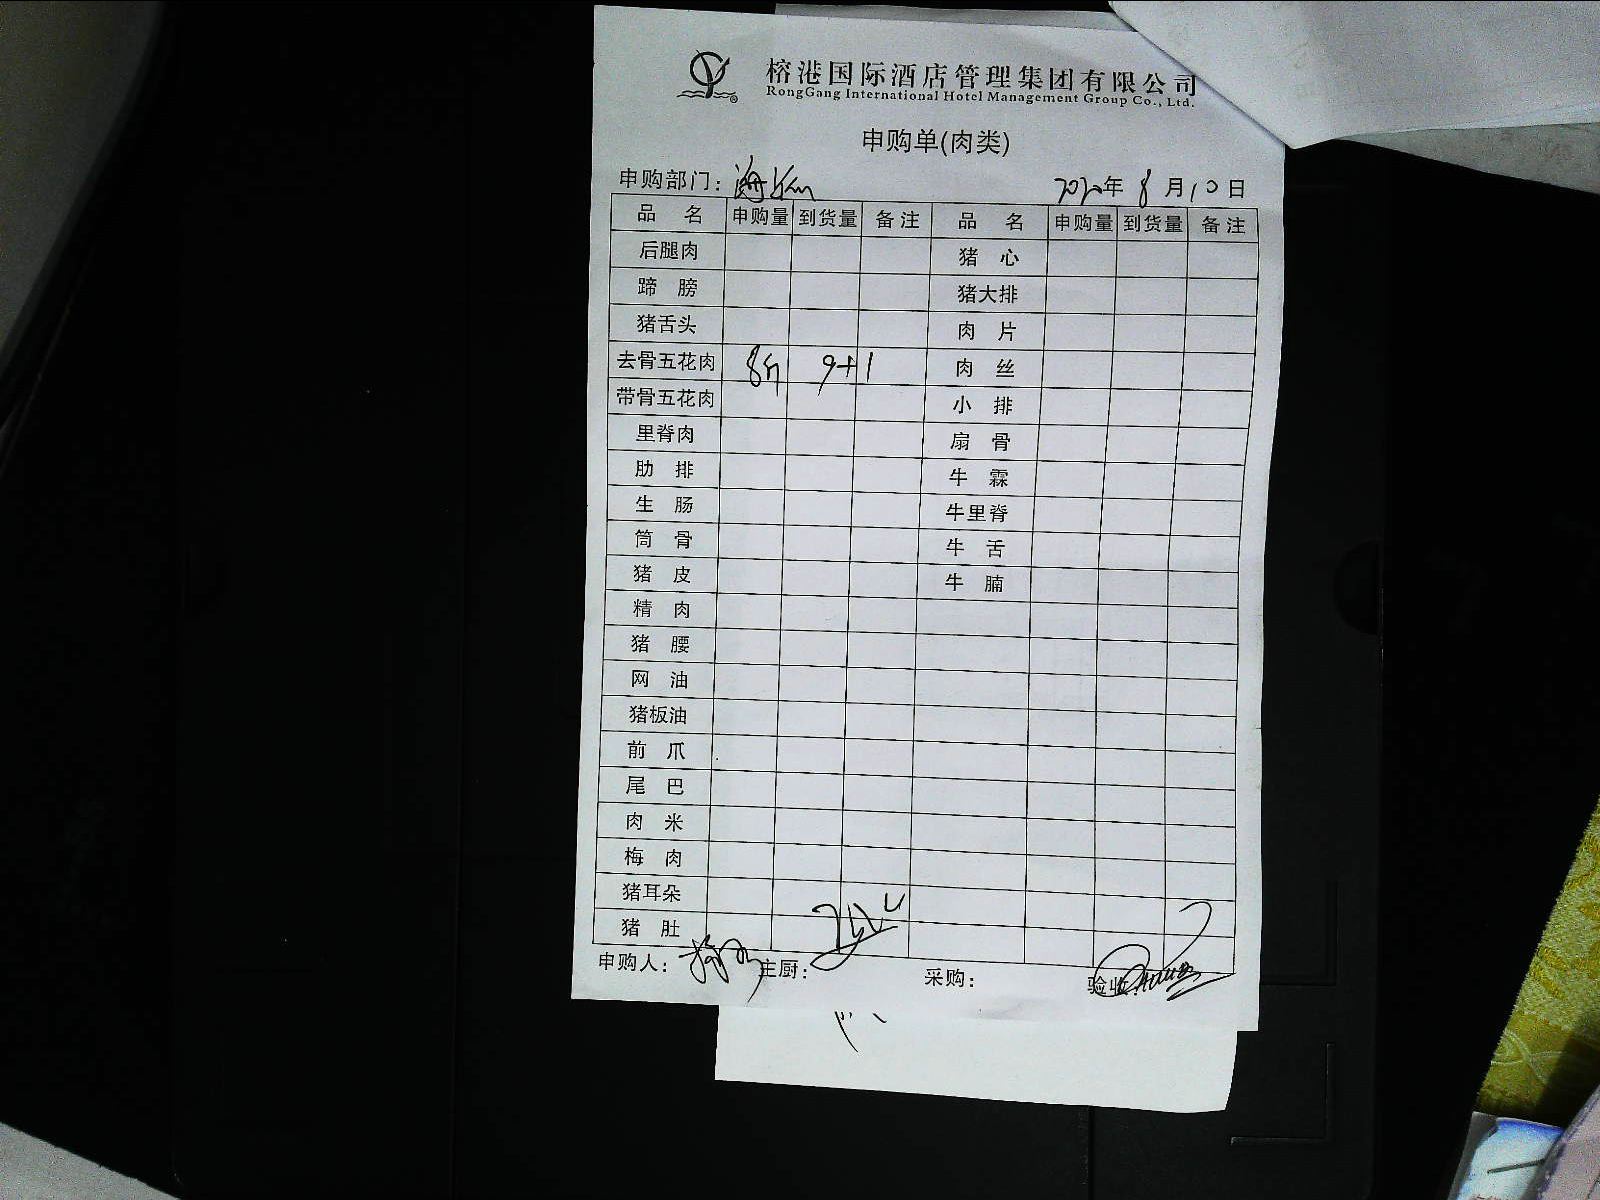 榕港国际酒店管理集团有限公司
RongGang International Hotel Management Group Co., Ltd.
申购单(肉类)
申购部门： 2020年 8 月 10 日
品 名 申购量 到货量 备注 品 名 申购量 到货量 备注
后腿肉 猪 心
蹄 膀 猪大排
猪舌头 肉 片
去骨五花肉 8斤 9+1 肉 丝
带骨五花肉 小 排
里脊肉 扇 骨
肋 排 牛 霖
生 肠 牛里脊
筒 骨 牛 舌
猪 皮 牛 腩
精 肉
猪 腰
网 油
猪板油
前 爪
尾 巴
肉 米
梅 肉
猪耳朵
猪 肚
申购人： 主厨： 采购： 验收：